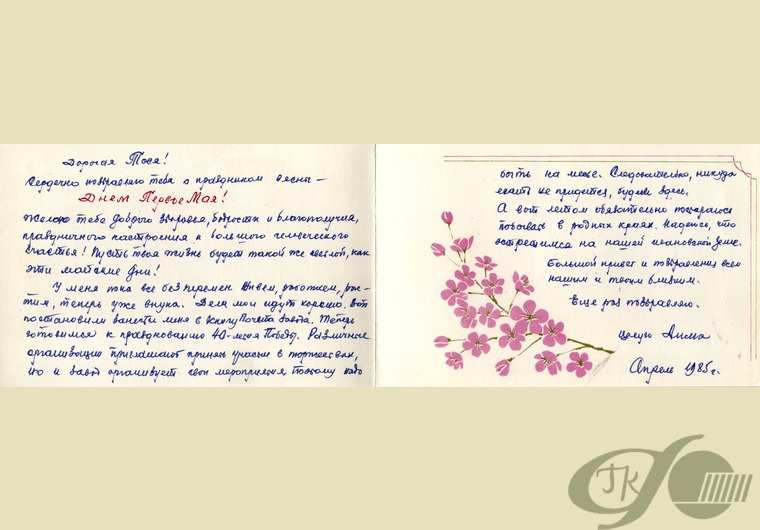 Дорогая Тося!
Сердечно поздравляю тебя с праздником весны —
Днем Первое Мая!
Желаю тебе доброго здоровья, бодрости и благополучия,
праздничного настроения и большого человеческого
счастья! Пусть твоя жизнь будет такой же светлой, как
эти майские дни!
У меня пока все без перемен. Живем, работаем, рас-
тим, теперь уже внука. Дела мои идут хорошо. Вот
постановили занести меня в книгу Почета завода. Теперь
готовимся к празднованию 40-летия Победы. Различные
организации приглашают принять участие в торжествах,
но и завод организует свои мероприятия. Поэтому надо
быть на месте. Следовательно, никуда
ехать не придется, будем здесь.
А вот летом обязательно постараюсь
побывать в родных краях. Надеюсь, что
встретимся на нашей ивановской земле.
Большой привет и поздравления всем
нашим и твоим близким.
Еще раз поздравляю.
Целую
Апрель 1985 г.
ГК